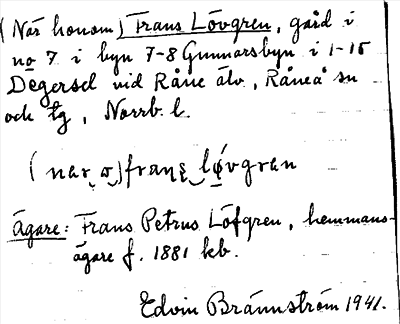 (När honom) Frans Lövgren, gård i
no 7 i byn 7-8 Gunnarsbyn i 1-15
Degersel vid Råne älv, Råneå sn
och tg, Norrb. l.
(nar o) frans lövgran
Ägare: Frans Petrus Löfgren, hemmans-
ägare f. 1881 kb.
Edvin Brännström 1941.